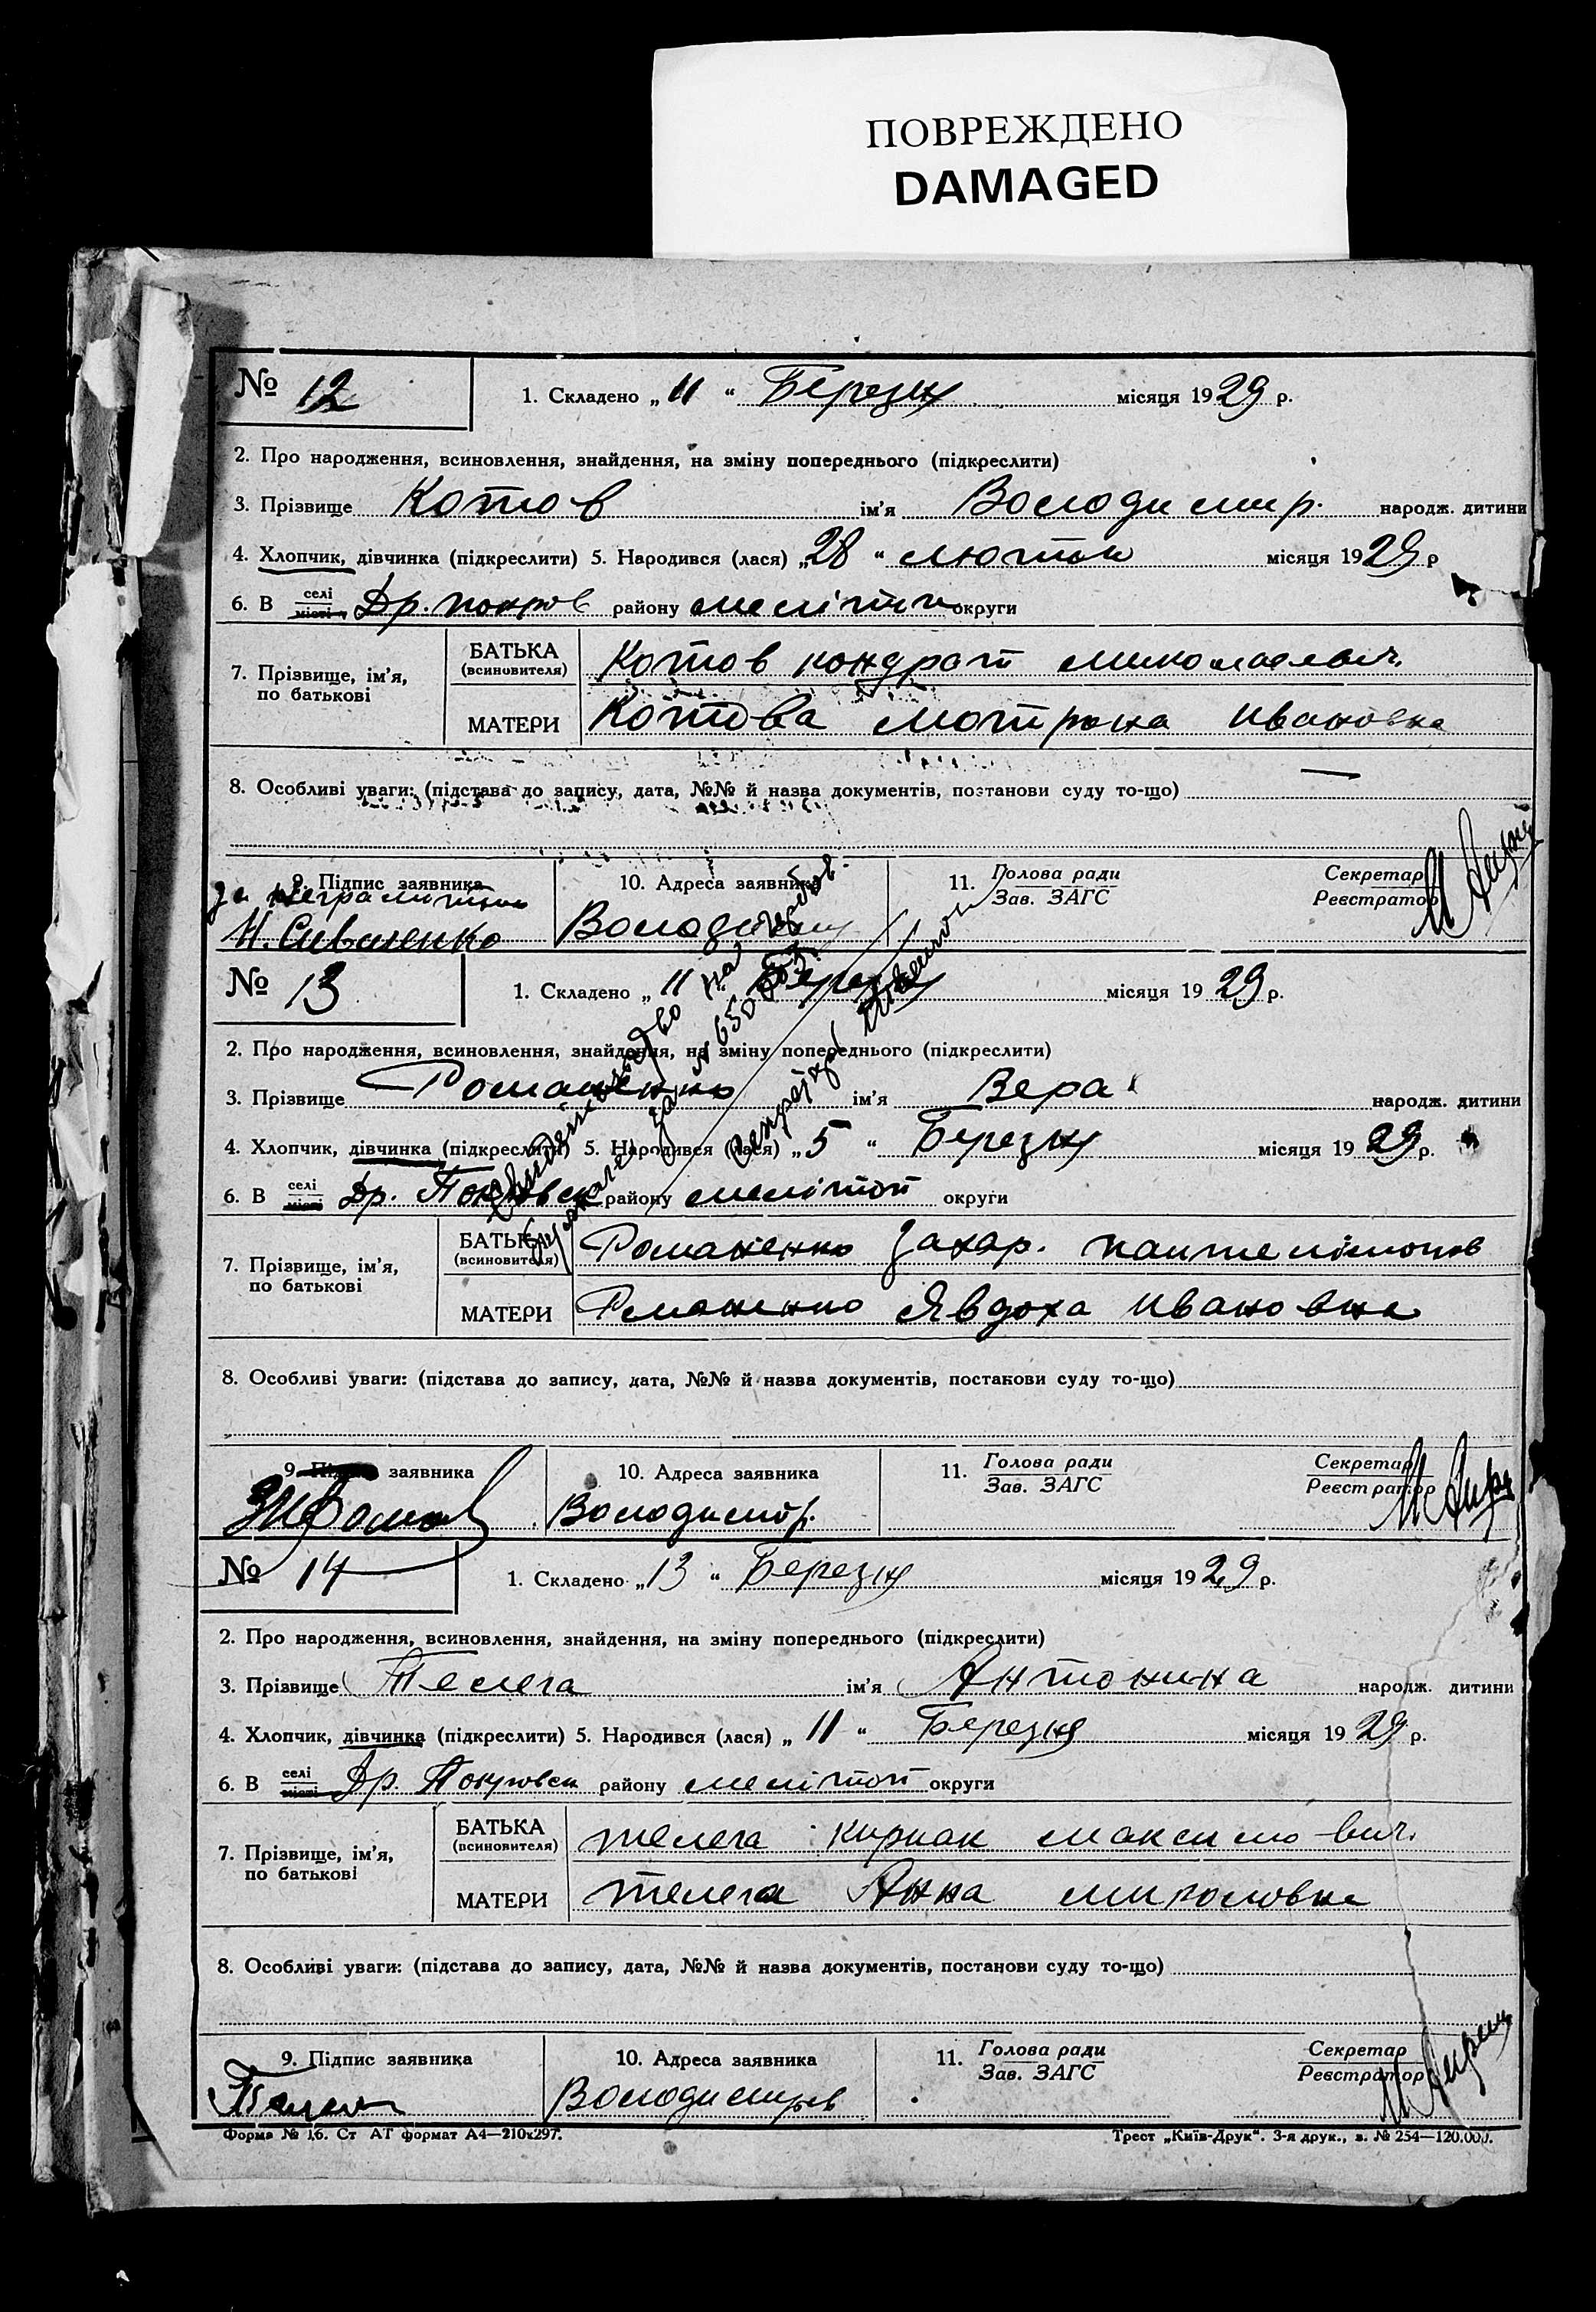 ПОВРЕЖДЕНО
DAMAGED
№ 12 1. Складено „ 11 “ Березня місяця 1929 р.
2. Про народження, всиновлення, знайдення, на зміну попереднього (підкреслити)
3. Прізвище Котов ім'я Володимир. народж. дитини
4. Хлопчик, дівчинка (підкреслити) 5. Народився (лася) „28 “ лютня місяця 1929 р
6. В селі місті Др. покров району мелітоп округи
7. Прізвище, ім'я, по батькові
БАТЬКА (всиновителя) Котов кондрат миколаевич
МАТЕРИ Котова мотрона ивановна
8. Особливі уваги: (підстава до запису, дата, №№ й назва документів, постанови суду то-що) —
9. Підпис заявника 10. Адреса заявника 11. Голова ради Зав. ЗАГС Секретар Реєстратор
за неграмотною
Володимир
№ 13 1. Складено „ 11 “ Березня місяця 1929 р.
2. Про народження, всиновлення, знайдення, на зміну попереднього (підкреслити)
3. Прізвище Романенко ім'я Вера народж. дитини
4. Хлопчик, дівчинка (підкреслити) 5. Народився (лася) „ 5 “ Березня місяця 1929 р.
6. В селі місті Др. Покровск району мелітоп округи
7. Прізвище, ім'я, по батькові
БАТЬКА (всиновителя) Романенко Захар. пантелімонов
МАТЕРИ Романенко Явдоха ивановна
8. Особливі уваги: (підстава до запису, дата, №№ й назва документів, постанови суду то-що)
9. Підпис заявника 10. Адреса заявника 11. Голова ради Зав. ЗАГС Секретар Реєстратор
Володимір.
№ 14 1. Складено „13 “ Березня місяця 1929 р.
2. Про народження, всиновлення, знайдення, на зміну попереднього (підкреслити)
3. Прізвище Телега ім'я Антонина народж. дитини
4. Хлопчик, дівчинка (підкреслити) 5. Народився (лася) „ 11 “ Березня місяця 1929 р.
6. В селі місті Др. Покровск району мелітоп округи
7. Прізвище, ім'я, по батькові
БАТЬКА (всиновителя) телега кириак максимович
МАТЕРИ телега Анна
8. Особливі уваги: (підстава до запису, дата, №№ й назва документів, постанови суду то-що)
9. Підпис заявника 10. Адреса заявника 11. Голова ради Зав. ЗАГС Секретар Реєстратор
Телега Володимиров
Форма № 16. Ст АТ формат А4—210х297. Трест „Київ-Друк“. 3-я друк., з. № 254—120.000.